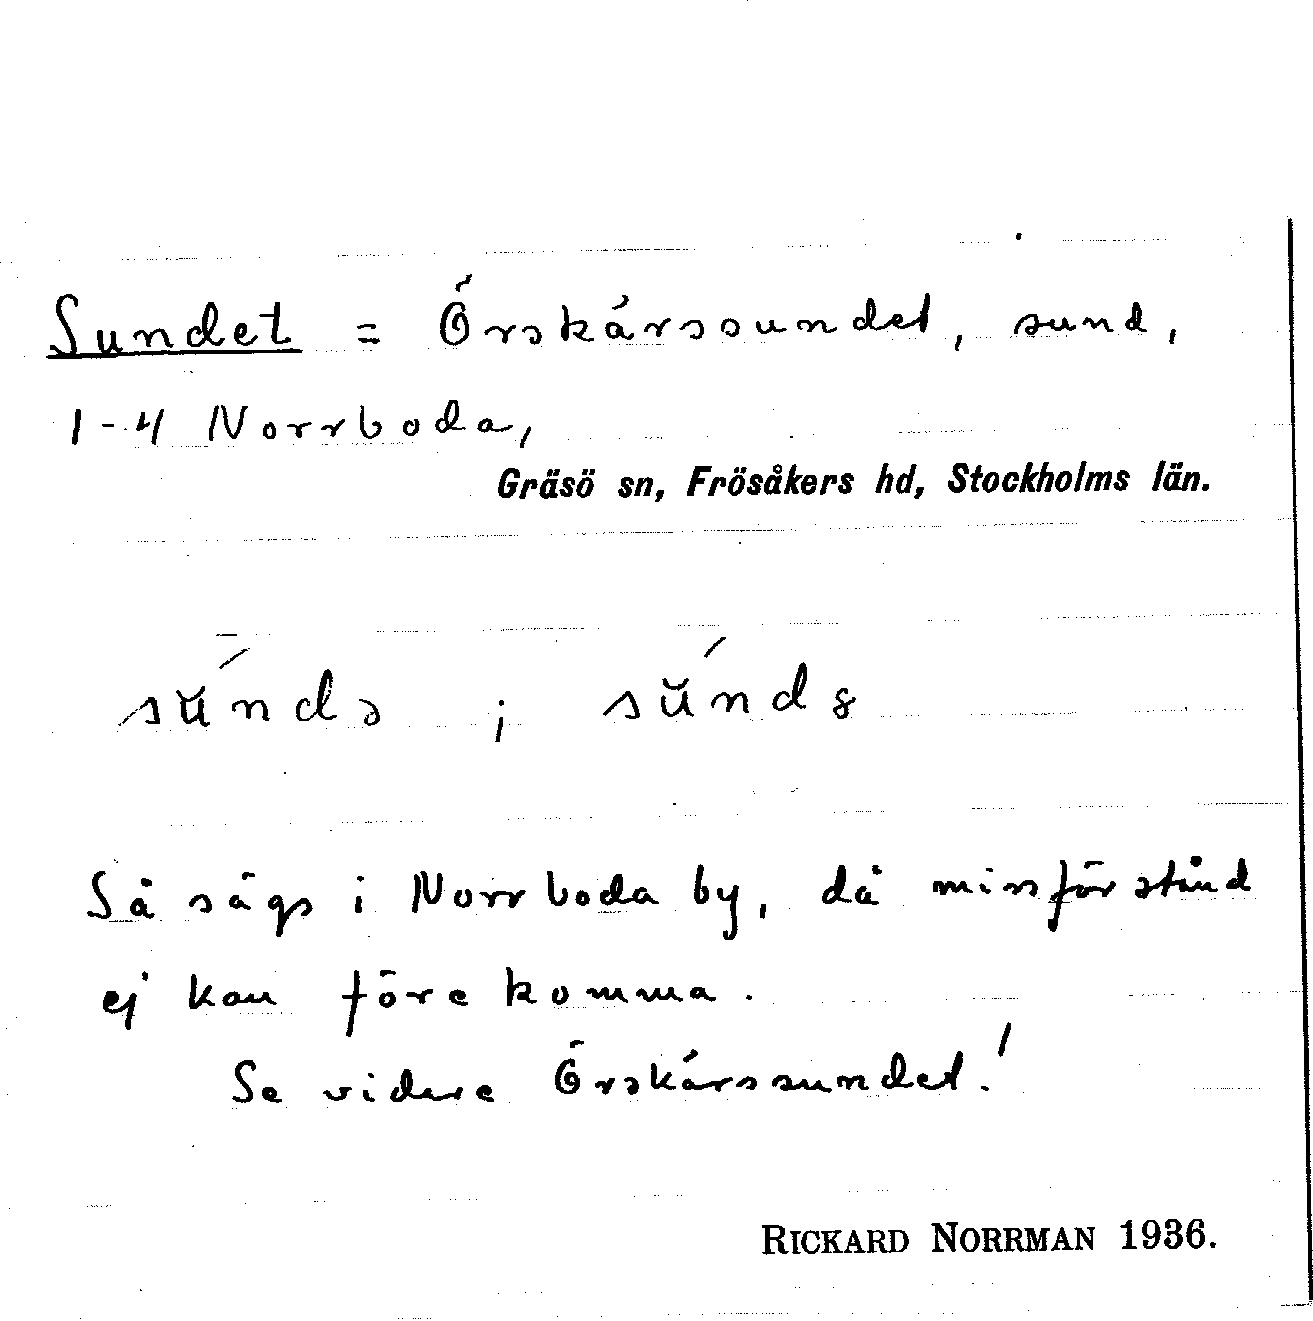 Sundet = Örskärssundet, sund,
1-4 Norrboda,
Gräsö sn, Frösåkers hd, Stockholms län.
sŭ́ndə ; sŭ́nd
Så sägs i Norrboda by, då missförstånd
ej kan förekomma.
Se vidare Örskärssundet!
RICKARD NORRMAN 1936.